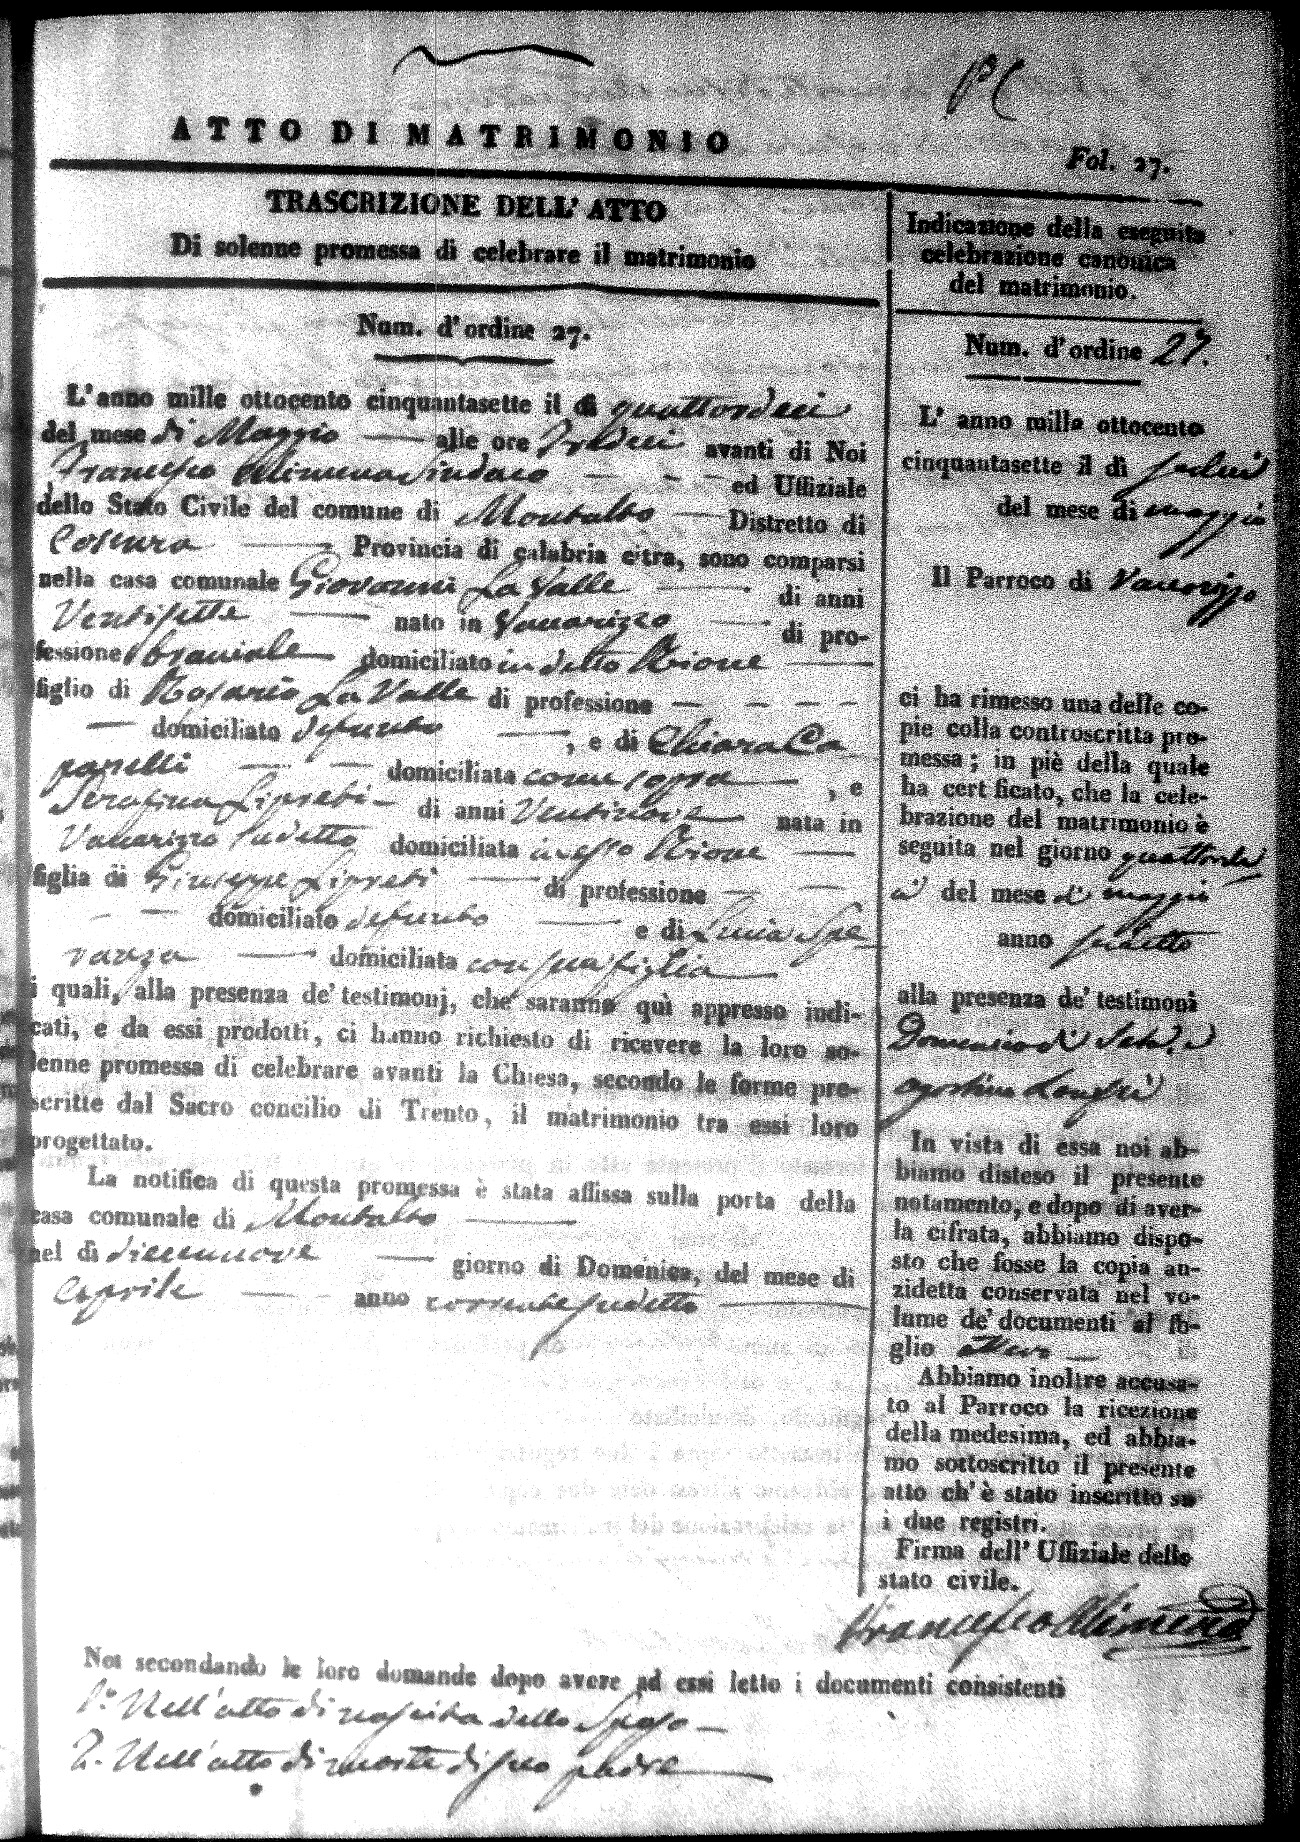 ATTO DI MATRIMONIO
Fol. 27.
TRASCRIZIONE DELL' ATTO
Di solenne promessa di celebrare il matrimonio
Num. d'ordine 27.
L'anno mille ottocento cinquantasette il dì quattordeci
del mese di Maggio alle ore tredeci avanti di Noi
Francesco Alimena Sindaco ed Uffiziale
dello Stato Civile del comune di Montalto Distretto di
Cosenza Provincia di calabria citra, sono comparsi
nella casa comunale Giovanni La Valle di anni
Ventisette nato in Vaccarizzo di pro-
fessione braciale domiciliato in detto Rione
figlio di Rosario La Valle di professione
domiciliato defunto , e di Chiara Ca
panelli domiciliata come sopra , e
Serafina Lipreti di anni Ventinove nata in
Vaccarizzo sudetto domiciliata in esso Rione
figlia di Giuseppe Lipreti di professione
domiciliato defunto e di Lucia Spe
ranza domiciliata con sua figlia
i quali, alla presenza de' testimonj, che saranno quì appresso indi-
cati, e da essi prodotti, ci hanno richiesto di ricevere la loro so-
lenne promessa di celebrare avanti la Chiesa, secondo le forme pre-
scritte dal Sacro concilio di Trento, il matrimonio tra essi loro
progettato.
La notifica di questa promessa è stata affissa sulla porta della
casa comunale di Montalto
nel dì diecennove giorno di Domenica, del mese di
Aprile anno corrente sudetto
Noi secondando le loro domande dopo avere ad essi letto i documenti consistenti
1.° Nell'atto di nascita dello Sposo
2. Nell'atto di morte di suo padre
Indicazione della eseguita
celebrazione canonica
del matrimonio.
Num. d'ordine 27.
L' anno mille ottocento
cinquantasette il dì sedeci
del mese di maggio
Il Parroco di Vaccarizzo
ci ha rimesso una delle co-
pie colla controscritta pro-
messa; in piè della quale
ha cert ficato, che la cele-
brazione del matrimonio è
seguita nel giorno quattorde
ci del mese di maggio
anno sudetto
alla presenza de' testimoni
Domenico di
Agostino
In vista di essa noi ab-
biamo disteso il presente
notamento, e dopo di aver-
la cifrata, abbiamo dispo-
sto che fosse la copia an-
zidetta conservata nel vo-
lume de' documenti al fo-
glio
Abbiamo inoltre accusa-
to al Parroco la ricezione
della medesima, ed abbia-
mo sottoscritto il presente
atto ch' è stato inscritto su
i due registri.
Firma dell' Uffiziale dello
stato civile.
Francesco Alimena